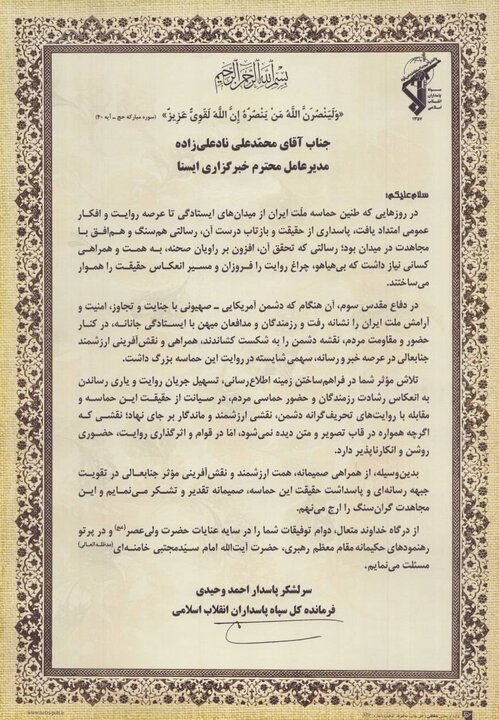 بسم الله الرحمن الرحیم
سپاه
پاسداران
انقلاب
اسلامی
۱۳۵۷
«وَلَیَنْصُرَنَّ اللَّهُ مَنْ یَنْصُرُهُ إِنَّ اللَّهَ لَقَوِیٌّ عَزِیزٌ» (سوره مبارکه حج ـ آیه ۴۰)
جناب آقای محمّدعلی نادعلی‌زاده
مدیرعامل محترم خبرگزاری ایسنا
سلام‌علیکم؛
در روزهایی که طنین حماسه ملّت ایران از میدان‌های ایستادگی تا عرصه روایت و افکار
عمومی امتداد یافت، پاسداری از حقیقت و بازتاب درست آن، رسالتی هم‌سنگ و هم‌افق با
مجاهدت در میدان بود؛ رسالتی که تحقق آن، افزون بر راویان صحنه، به همت و همراهی
کسانی نیاز داشت که بی‌هیاهو، چراغ روایت را فروزان و مسیر انعکاس حقیقت را هموار
می‌ساختند.
در دفاع مقدس سوم، آن هنگام که دشمن آمریکایی ـ صهیونی با جنایت و تجاوز، امنیت و
آرامش ملت ایران را نشانه رفت و رزمندگان و مدافعان میهن با ایستادگی جانانه، در کنار
حضور و مقاومت مردم، نقشه دشمن را به شکست کشاندند، همراهی و نقش‌آفرینی ارزشمند
جنابعالی در عرصه خبر و رسانه، سهمی شایسته در روایت این حماسه بزرگ داشت.
تلاش مؤثر شما در فراهم‌ساختن زمینه اطلاع‌رسانی، تسهیل جریان روایت و یاری رساندن
به انعکاس رشادت رزمندگان و حضور حماسی مردم، در صیانت از حقیقت این حماسه و
مقابله با روایت‌های تحریف‌گرانه دشمن، نقشی ارزشمند و ماندگار بر جای نهاد؛ نقشی که
اگرچه همواره در قاب تصویر و متن دیده نمی‌شود، امّا در قوام و اثرگذاری روایت، حضوری
روشن و انکارناپذیر دارد.
بدین‌وسیله، از همراهی صمیمانه، همت ارزشمند و نقش‌آفرینی مؤثر جنابعالی در تقویت
جبهه رسانه‌ای و پاسداشت حقیقت این حماسه، صمیمانه تقدیر و تشکر می‌نمایم و این
مجاهدت گران‌سنگ را ارج می‌نهم.
از درگاه خداوند متعال، دوام توفیقات شما را در سایه عنایات حضرت ولی‌عصر(عج) و در پرتو
رهنمودهای حکیمانه مقام معظم رهبری، حضرت آیت‌الله امام سیّدمجتبی خامنه‌ای(مدظله‌العالی)
مسئلت می‌نمایم.
سرلشکر پاسدار احمد وحیدی
فرمانده کل سپاه پاسداران انقلاب اسلامی